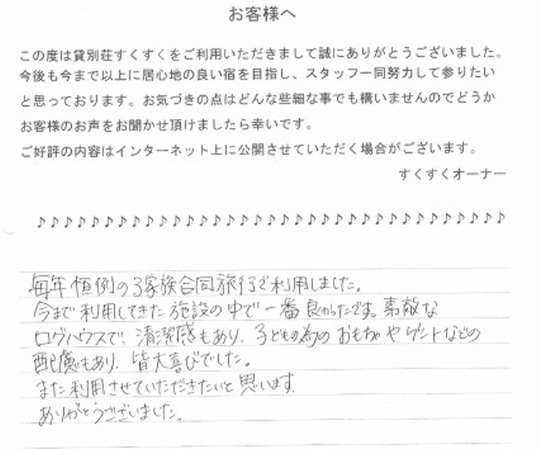 お客様へ
この度は貸別荘すくすくをご利用いただきまして誠にありがとうございました。
今後も今まで以上に居心地の良い宿を目指し、スタッフ一同努力して参りたい
と思っております。お気づきの点はどんな些細な事でも構いませんのでどうか
お客様のお声をお聞かせ頂けましたら幸いです。
ご好評の内容はインターネット上に公開させていただく場合がございます。
すくすくオーナー
♪♪♪♪♪♪♪♪♪♪♪♪♪♪♪♪♪♪♪♪♪♪♪♪♪♪♪♪♪♪♪♪♪♪♪
毎年恒例の3家族合同旅行で利用しました。
今まで利用してきた施設の中で一番良かったです。素敵な
ログハウスで、清潔感もあり、子どもの為のおもちゃやゲートなどの
配慮もあり、皆大喜びでした。
また利用させていただきたいと思います。
ありがとうございました。